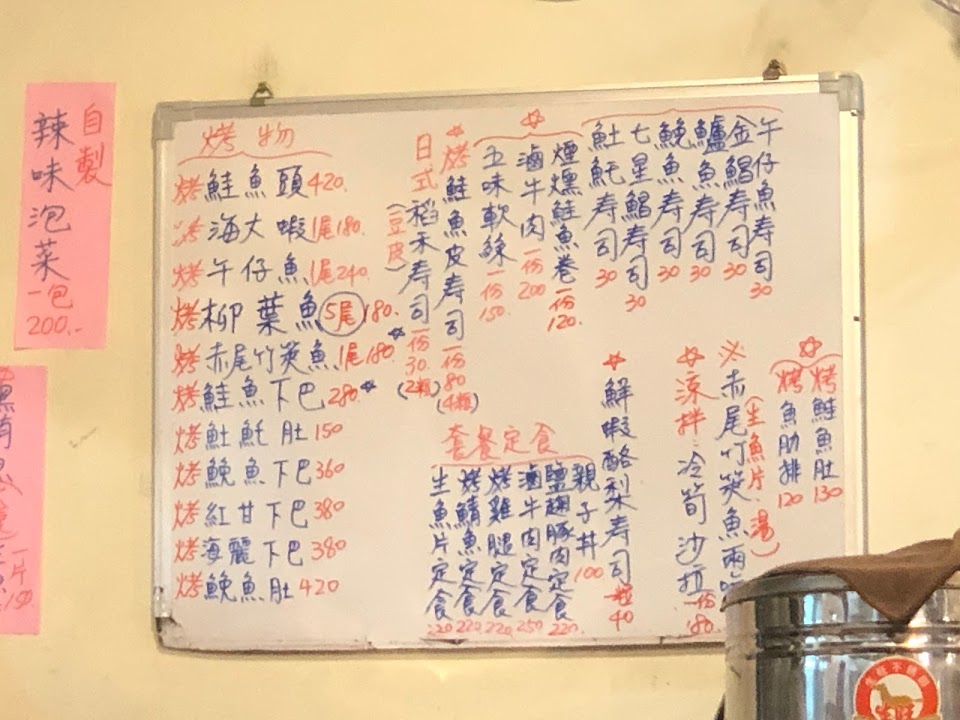 自製
辣味泡菜
一包
200.-
烤物
烤鮭魚頭420.
烤海大蝦1尾180.
烤午仔魚1尾240.
烤柳葉魚5尾180.
烤赤尾竹筴魚1尾180.
烤鮭魚下巴280
烤魠魠肚150
烤鮸魚下巴360
烤紅甘下巴380
烤海麗下巴380
烤鮸魚肚420
日式(豆皮)稻禾寿司一份30.(2粿)
烤鮭魚皮寿司一份80(4粿)
五味軟絲一份150.
滷牛肉一份200
煙燻鮭魚卷一份120.
魠魠寿司30
七星鯧寿司30
鮸魚寿司30
鱸魚寿司30
金鯧寿司30
午仔魚寿司30
套餐定食
生魚片定食220
烤鯖魚定食220
烤雞腿定食220
滷牛肉定食250
鹽麴豚肉定食220
親子丼100
鮮蝦酪梨寿司一粒40
涼拌:冷筍沙拉一份80
※赤尾竹筴魚兩吃
(生魚片.湯)
烤魚肋排120
烤鮭魚肚130
一片
150.